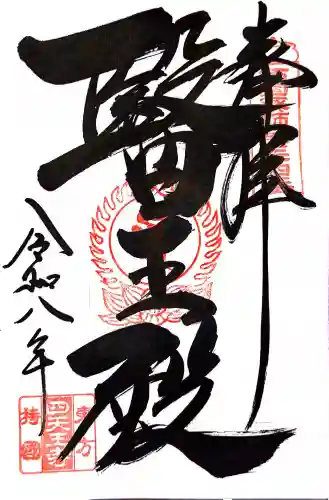 奉拝
醫王殿
令和八年
東方
四天王寺
持国